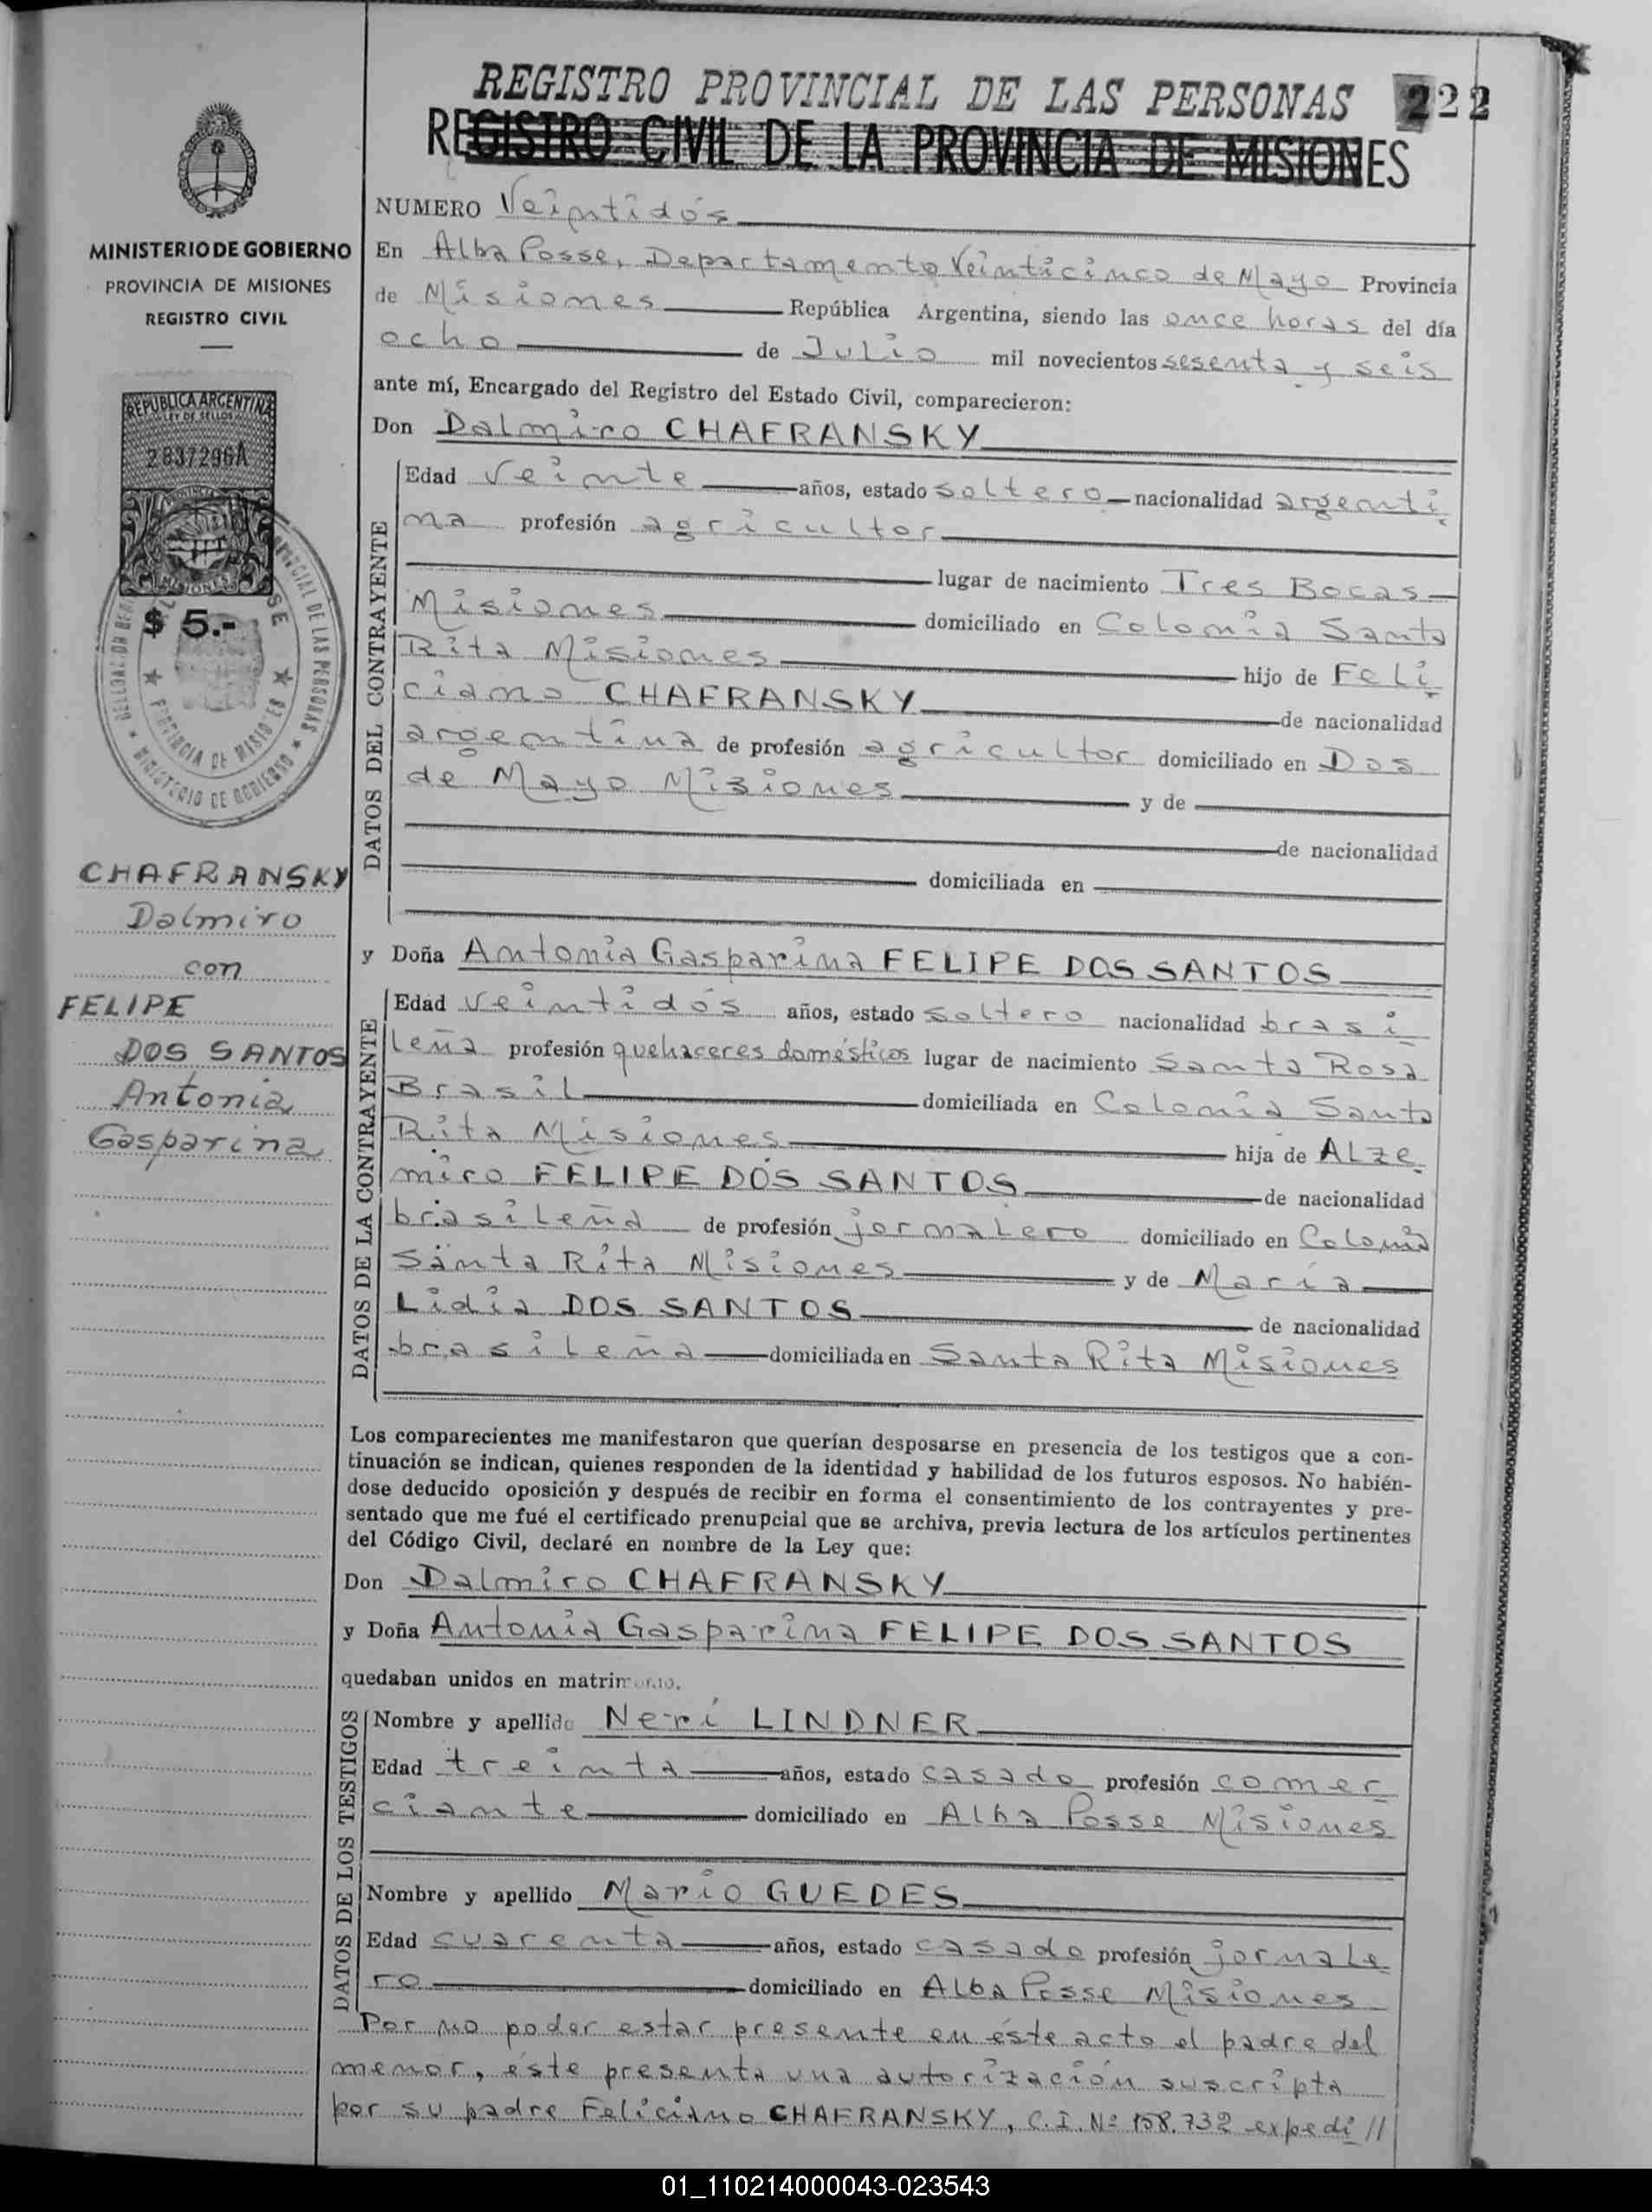 REGISTRO PROVINCIAL DE LAS PERSONAS 222
REGISTRO CIVIL DE LA PROVINCIA DE MISIONES
MINISTERIO DE GOBIERNO
PROVINCIA DE MISIONES
REGISTRO CIVIL
REPUBLICA ARGENTINA
LEY DE SELLOS
2837296A
MISIONES
$ 5.-
PROVINCIA DE MISIONES
MINISTERIO DE GOBIERNO
CHAFRANSKY
Dalmiro
con
FELIPE
DOS SANTOS
Antonia
Gasparina
NUMERO Veintidós
En Alba Posse, Departamento Veinticinco de Mayo Provincia
de Misiones República Argentina, siendo las once horas del día
ocho de Julio mil novecientos sesenta y seis
ante mí, Encargado del Registro del Estado Civil, comparecieron:
Don Dalmiro CHAFRANSKY
DATOS DEL CONTRAYENTE
Edad veinte años, estado soltero nacionalidad argenti
na profesión agricultor
lugar de nacimiento Tres Bocas
Misiones domiciliado en Colonia Santa
Rita Misiones hijo de Feli
ciano CHAFRANSKY de nacionalidad
argentina de profesión agricultor domiciliado en Dos
de Mayo Misiones y de
de nacionalidad
domiciliada en
y Doña Antonia Gasparina FELIPE DOS SANTOS
DATOS DE LA CONTRAYENTE
Edad veintidós años, estado soltero nacionalidad brasi
leña profesión quehaceres domésticos lugar de nacimiento Santa Rosa
Brasil domiciliada en Colonia Santa
Rita Misiones hija de Alze
miro FELIPE DOS SANTOS de nacionalidad
brasileña de profesión jornalero domiciliado en Colonia
Santa Rita Misiones y de María
Lidia DOS SANTOS de nacionalidad
brasileña domiciliada en Santa Rita Misiones
Los comparecientes me manifestaron que querían desposarse en presencia de los testigos que a con-
tinuación se indican, quienes responden de la identidad y habilidad de los futuros esposos. No habién-
dose deducido oposición y después de recibir en forma el consentimiento de los contrayentes y pre-
sentado que me fué el certificado prenupcial que se archiva, previa lectura de los artículos pertinentes
del Código Civil, declaré en nombre de la Ley que:
Don Dalmiro CHAFRANSKY
y Doña Antonia Gasparina FELIPE DOS SANTOS
quedaban unidos en matrimonio.
DATOS DE LOS TESTIGOS
Nombre y apellido Neri LINDNER
Edad treinta años, estado casado profesión comer
ciante domiciliado en Alba Posse Misiones
Nombre y apellido Mario GUEDES
Edad cuarenta años, estado casado profesión jornale
ro domiciliado en Alba Posse Misiones
Por no poder estar presente en éste acto el padre del
menor, éste presenta una autorización suscripta
por su padre Feliciano CHAFRANSKY, C.I. Nº 158.732 expedi //
01_110214000043-023543